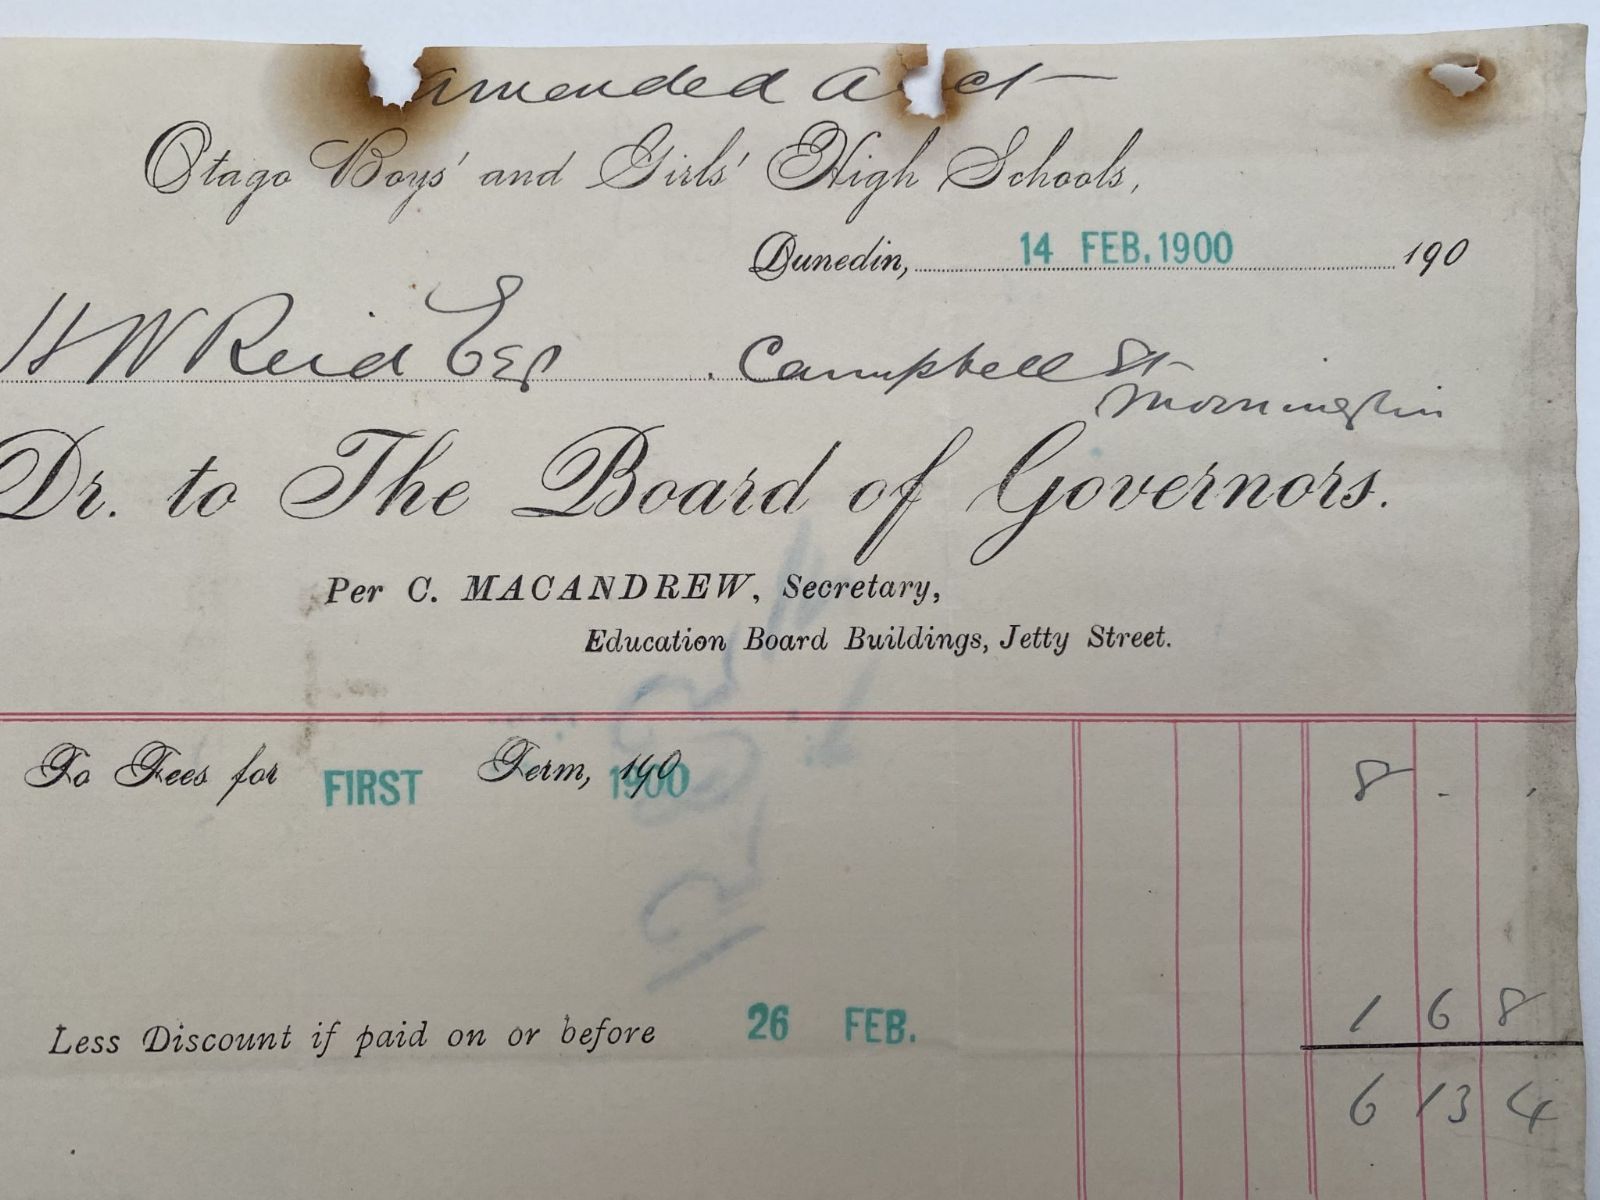 amended a ct
Otago Boys' and Girls' High Schools,
Dunedin, 14 FEB. 1900 190
H W Reid Esq Campbell St
Mornington
Dr. to The Board of Governors.
Per C. MACANDREW, Secretary,
Education Board Buildings, Jetty Street.
To Fees for FIRST Term, 190 1900 8 - -
Less Discount if paid on or before 26 FEB. 1 6 8
6 13 4